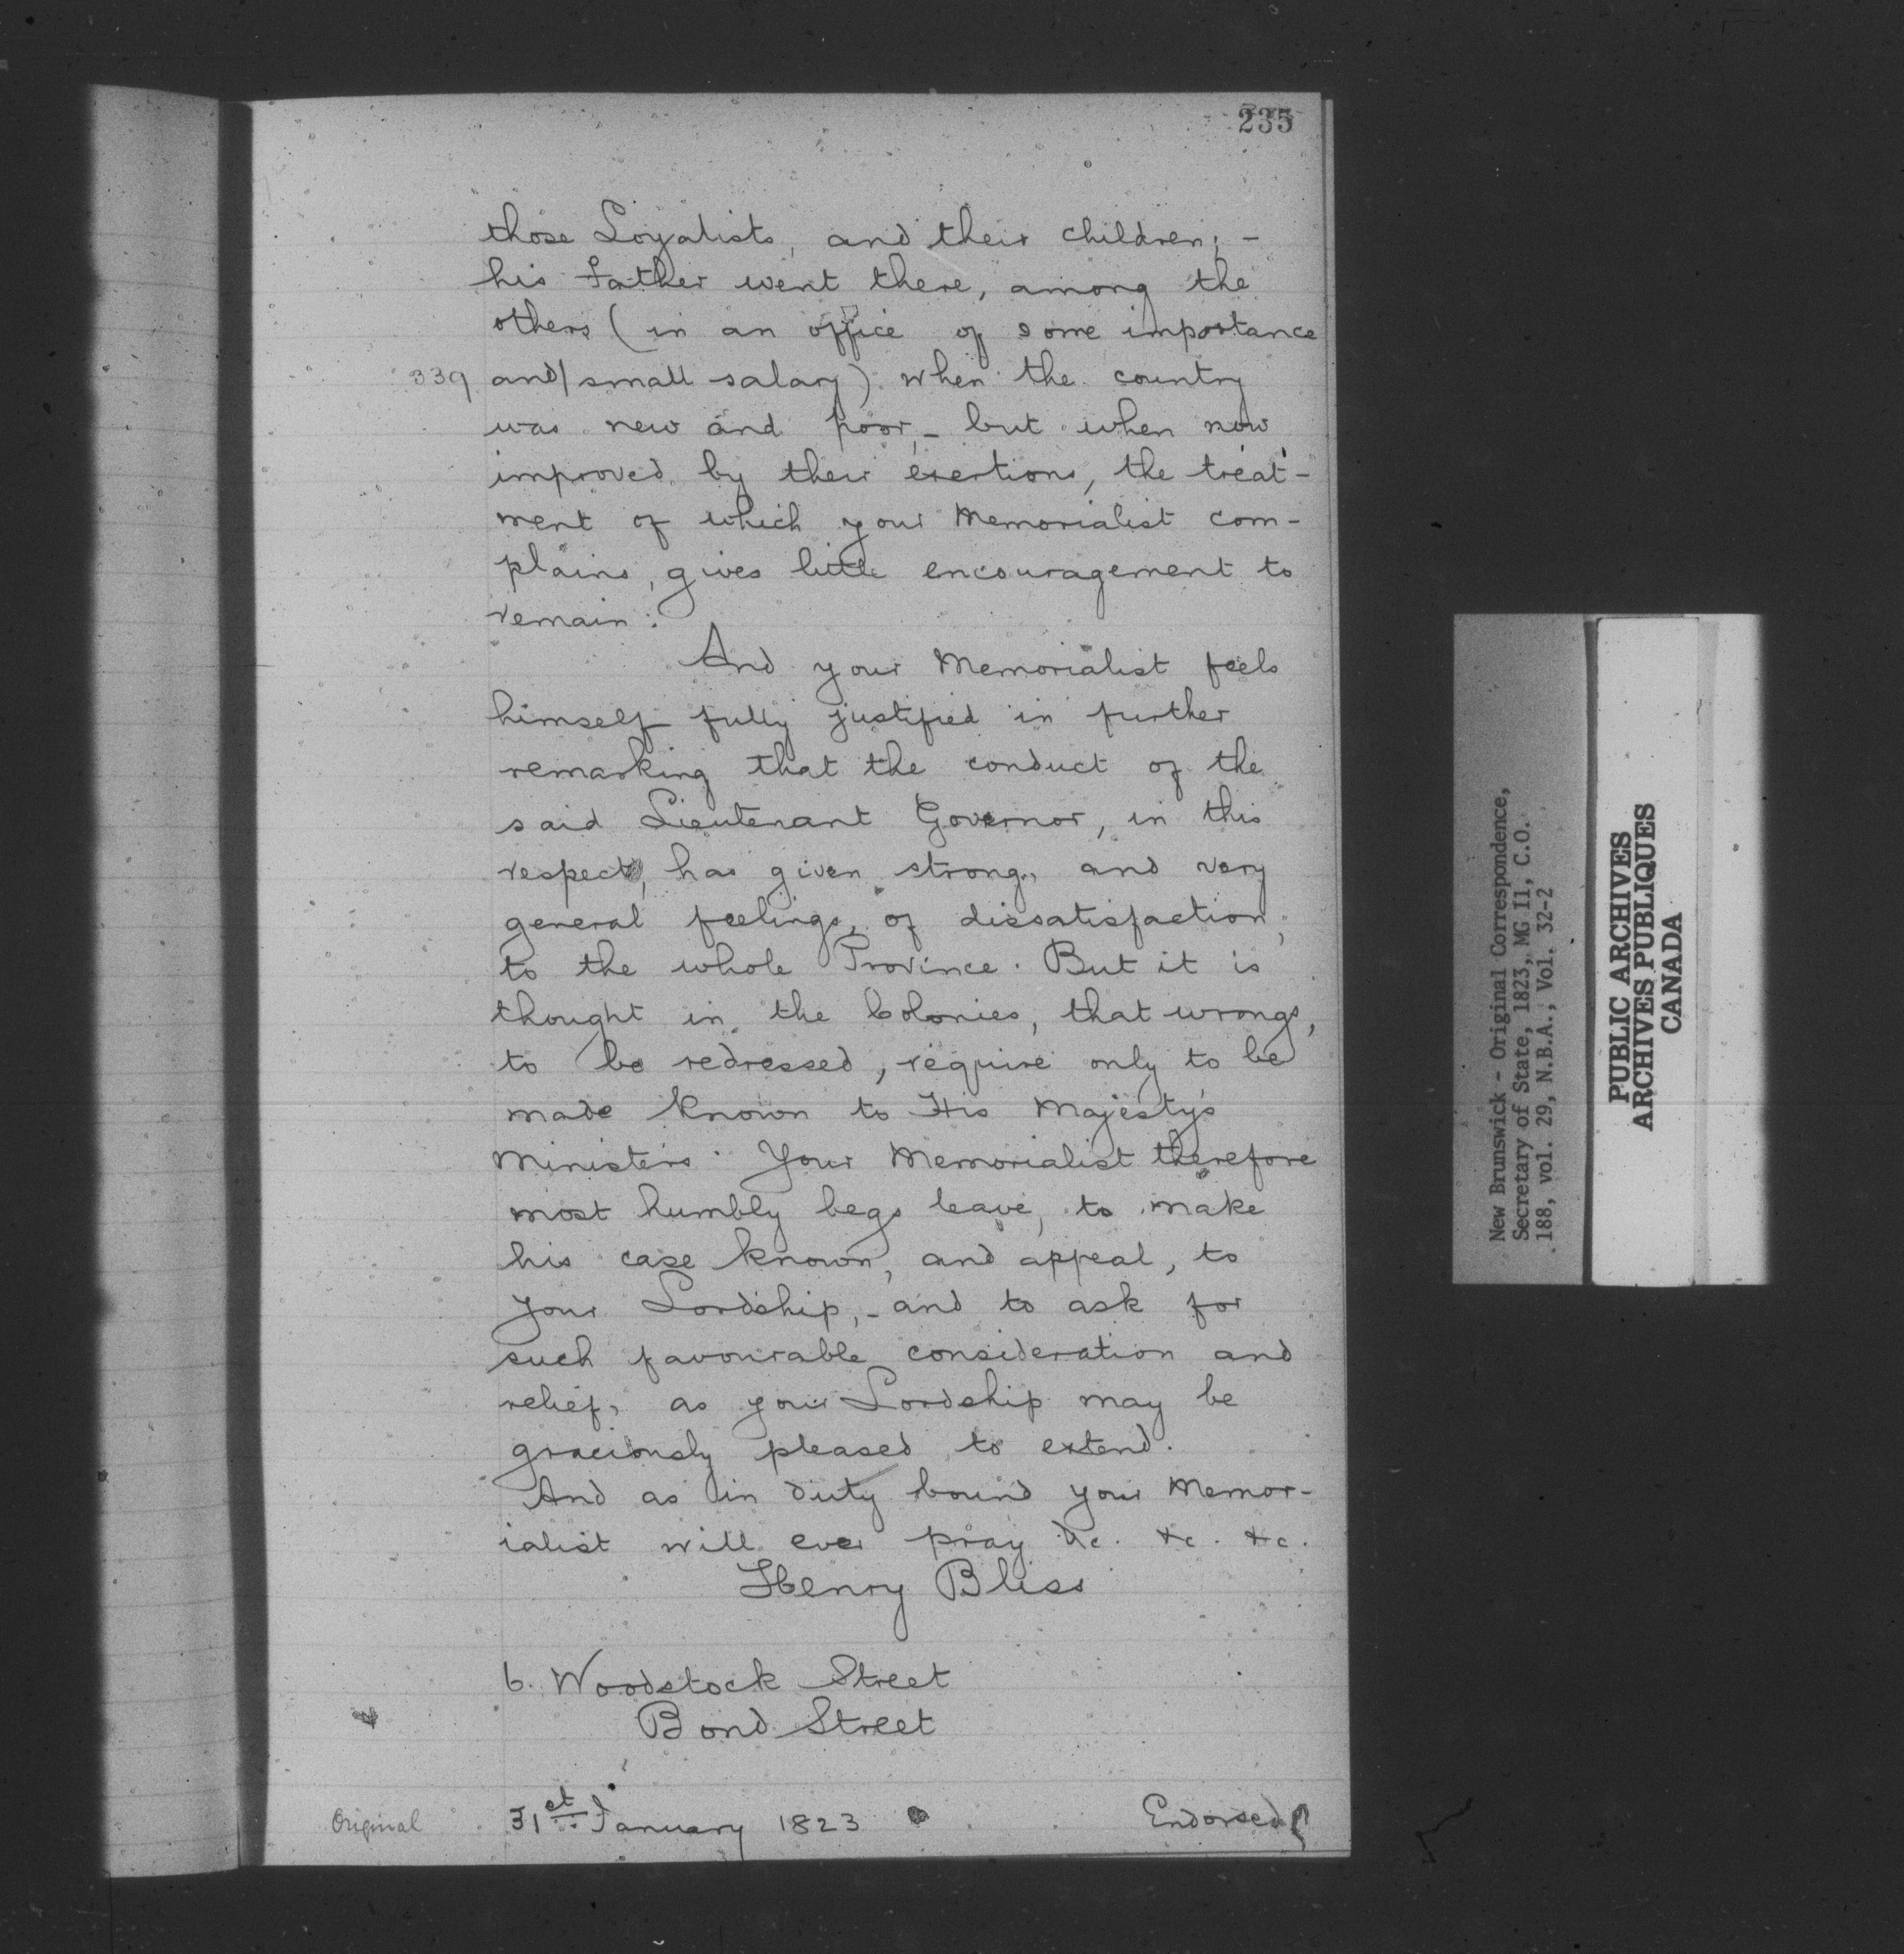 235
those Loyalists, and their children; -
his Father went there, among the
others (in an office of some importance
339 and/small salary) when the country
was new and poor, - but when now
improved by their exertions, the treat-
ment of which your Memorialist com-
plains, gives little encouragement to
remain:
And your Memorialist feels
himself fully justified in further
remarking that the conduct of the
said Lieutenant Governor, in this
respect, has given strong, and very
general feelings, of dissatisfaction,
to the whole Province. But it is
thought in the Colonies, that wrongs,
to be redressed, require only to be
made known to His Majesty's
Ministers. Your Memorialist therefore
most humbly begs leave, to make
his case known, and appeal, to
your Lordship, - and to ask for
such favourable consideration and
relief, as your Lordship may be
graciously pleased to extend.
And as in duty bound your Memor-
ialist will ever pray &c. &c. &c.
Henry Bliss
6. Woodstock Street
Bond Street
Original 31st January 1823 Endorsed
New Brunswick - Original Correspondence,
Secretary of State, 1823, MG 11, C.O.
188, vol. 29, N.B.A., Vol. 32-2
PUBLIC ARCHIVES
ARCHIVES PUBLIQUES
CANADA